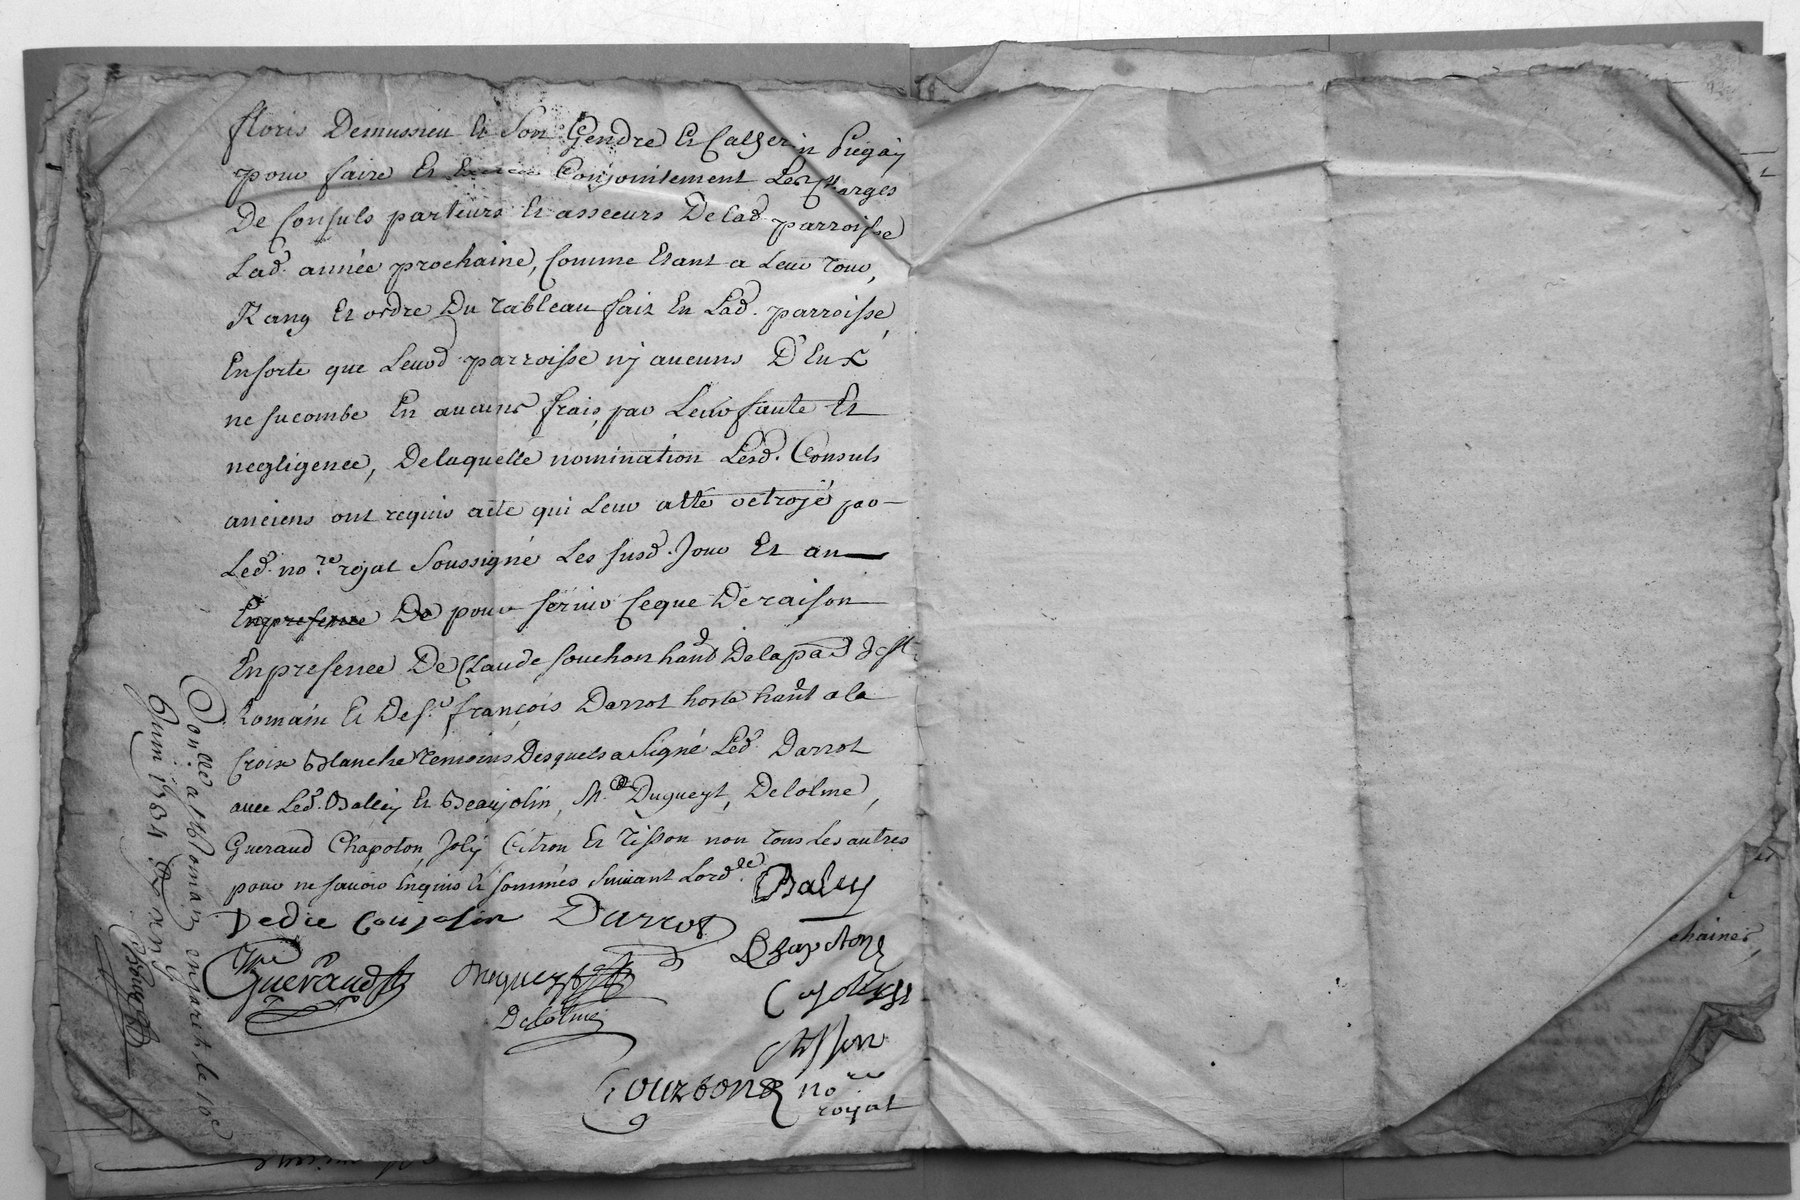 floris Demussieu Et Son Gendre Et Catherin Piegay
pour faire Et Conjointement Les Charges
De Consuls parteurs Et asseeurs De Lad. parroisse
Lad. année prochaine, Comme Etant a Leur Tour,
Rang Et ordre Du Tableau fait En Lad. parroisse,
Ensorte que Leurd parroisse ny aucuns D'Eux
ne sucombe En aucuns frais, par Leur faute Et
negligence, Delaquelle nomination Lesd. Consuls
anciens ont requis acte qui Leur a Eté octroyé par
Led. no.re royal Soussigné Les susd. Jour Et an
Enpresence De pour servir Ceque De raison
Enpresence De Claude souchon hant De la pad. De St
Romain Et De Sr. françois Darrot hoste hant a la
Croix Blanche Temoins Desquels a Signé Led. Darrot
avec Led. Baley Et Beaujolin, Me. Dugueyt, Delolme,
Gueraud Chapoton, Joly Citron Et Tisson non Tous Les autres
pour ne savoir Enquis Et sommés Suivant Lord.ce
Baley
Darrot
Chapoton
Gueraud
Delolme
Tisson
Bourbon no.re
royal
Con.llé a St Romain en Jarest le 10e
Juin 1784
ehaine,